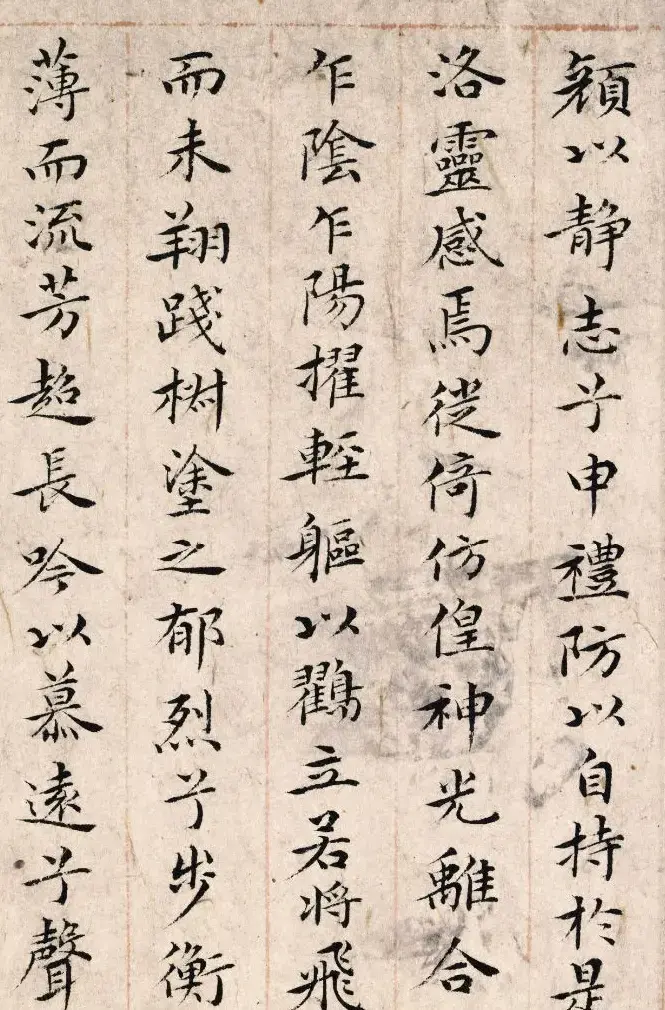 顔以静志兮申禮防以自持於是
洛靈感焉徙倚仿偟神光離合
乍陰乍陽擢輕軀以鸖立若將飛
而未翔踐椒塗之郁烈兮步衡
薄而流芳超長吟以慕遠兮聲